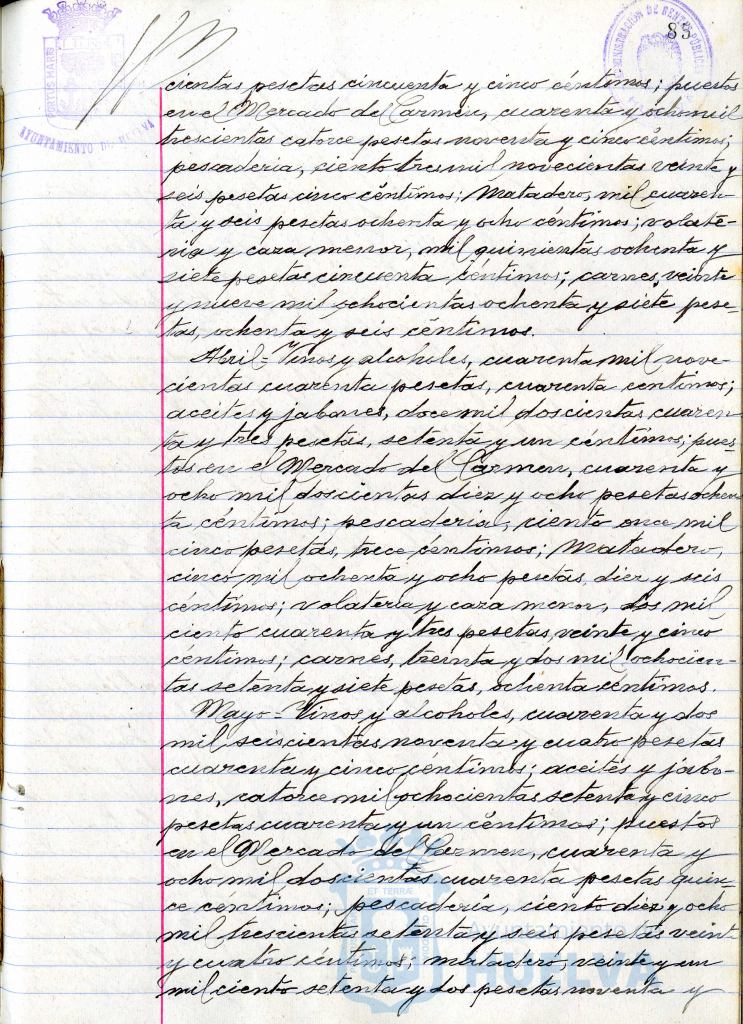 85
PORTUS MARIS
AYUNTAMIENTO DE HUELVA
ADMINISTRACIÓN DE RENTAS PÚBLICAS
cientas pesetas cincuenta y cinco céntimos; puestos
en el Mercado del Carmen, cuarenta y ocho mil
trescientas catorce pesetas noventa y cinco céntimos;
pescaderia, ciento tres mil novecientas veinte y
seis pesetas cinco céntimos; Matadero, mil cuaren-
ta y seis pesetas ochenta y ocho céntimos; volate-
ria y caza menor, mil quinientas ochenta y
siete pesetas cincuenta céntimos; carnes, veinte
y nueve mil ochocientas ochenta y siete pese-
tas, ochenta y seis céntimos.
Abril = Vinos y alcoholes, cuarenta mil nove-
cientas cuarenta pesetas, cuarenta centimos;
aceites y jabones, doce mil doscientas cuaren-
ta y tres pesetas, setenta y un céntimos; pues-
tos en el Mercado del Carmen, cuarenta y
ocho mil doscientas diez y ocho pesetas ochen-
ta céntimos; pescaderia, ciento once mil
cinco pesetas, trece céntimos; Matadero,
cinco mil ochenta y ocho pesetas, diez y seis
céntimos; volateria y caza menor, dos mil
ciento cuarenta y tres pesetas, veinte y cinco
céntimos; carnes, treinta y dos mil ochocien-
tas setenta y siete pesetas, ochenta céntimos.
Mayo = Vinos y alcoholes, cuarenta y dos
mil seiscientas noventa y cuatro pesetas
cuarenta y cinco céntimos; aceites y jabo-
nes, catorce mil ochocientas setenta y cinco
pesetas cuarenta y un céntimos; puestos
en el Mercado del Carmen, cuarenta y
ocho mil doscientas cuarenta pesetas quin-
ce centimos; pescadería, ciento diez y ocho
mil trescientas setenta y seis pesetas veinte
y cuatro céntimos; matadero, veinte y un
mil ciento setenta y dos pesetas noventa y
ET TERRAE
Ayuntamiento de
HUELVA